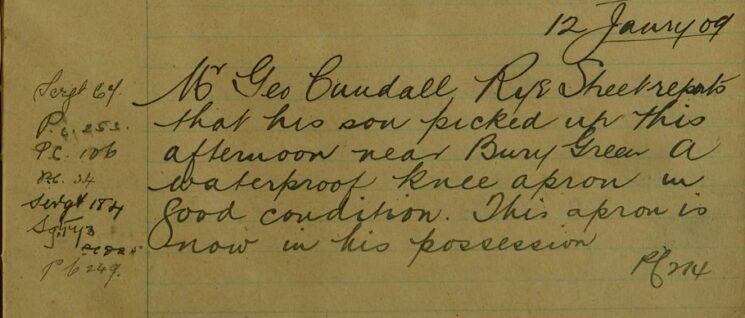 12 Janry 09
Mr Geo Cundall Rye Street reports
that his son picked up this
afternoon near Bury Green a
waterproof knee apron in
good condition. This apron is
now in his possession
Sergt 64
P.C. 253.
P.C. 106
P.C. 34
Sergt 184
P.C. 249.